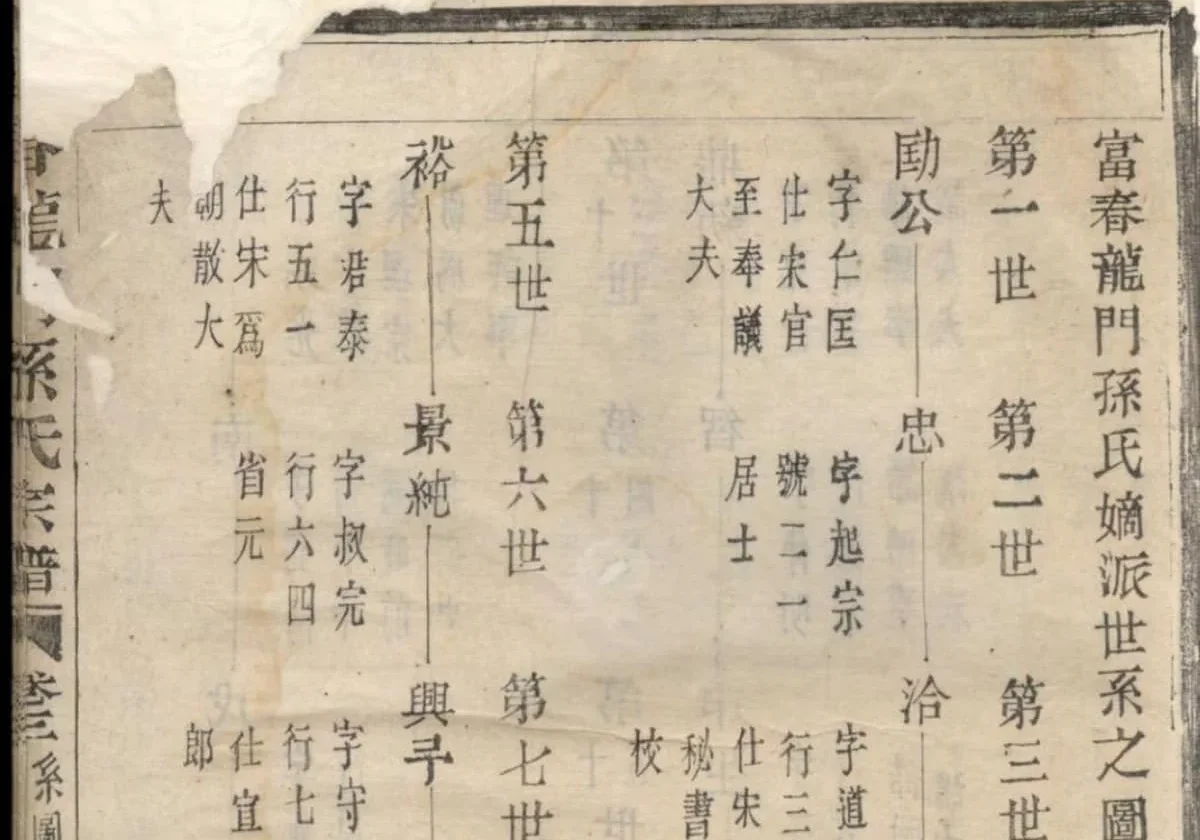 富春龍門孫氏嫡派世系之圖
第一世
第二世
第三世
勛公
忠
洽
字仁匡
仕宋官
至奉議
大夫
字起宗
號二一
居士
字道
行三
仕宋
秘書
校
第五世
第六世
第七世
裕
景純
興
字君泰
行五一
仕宋為
朝散大
夫
字叔完
行六四
省元
字守
行七
仕宣
郎
龍
孫氏宗譜
卷三
系圖